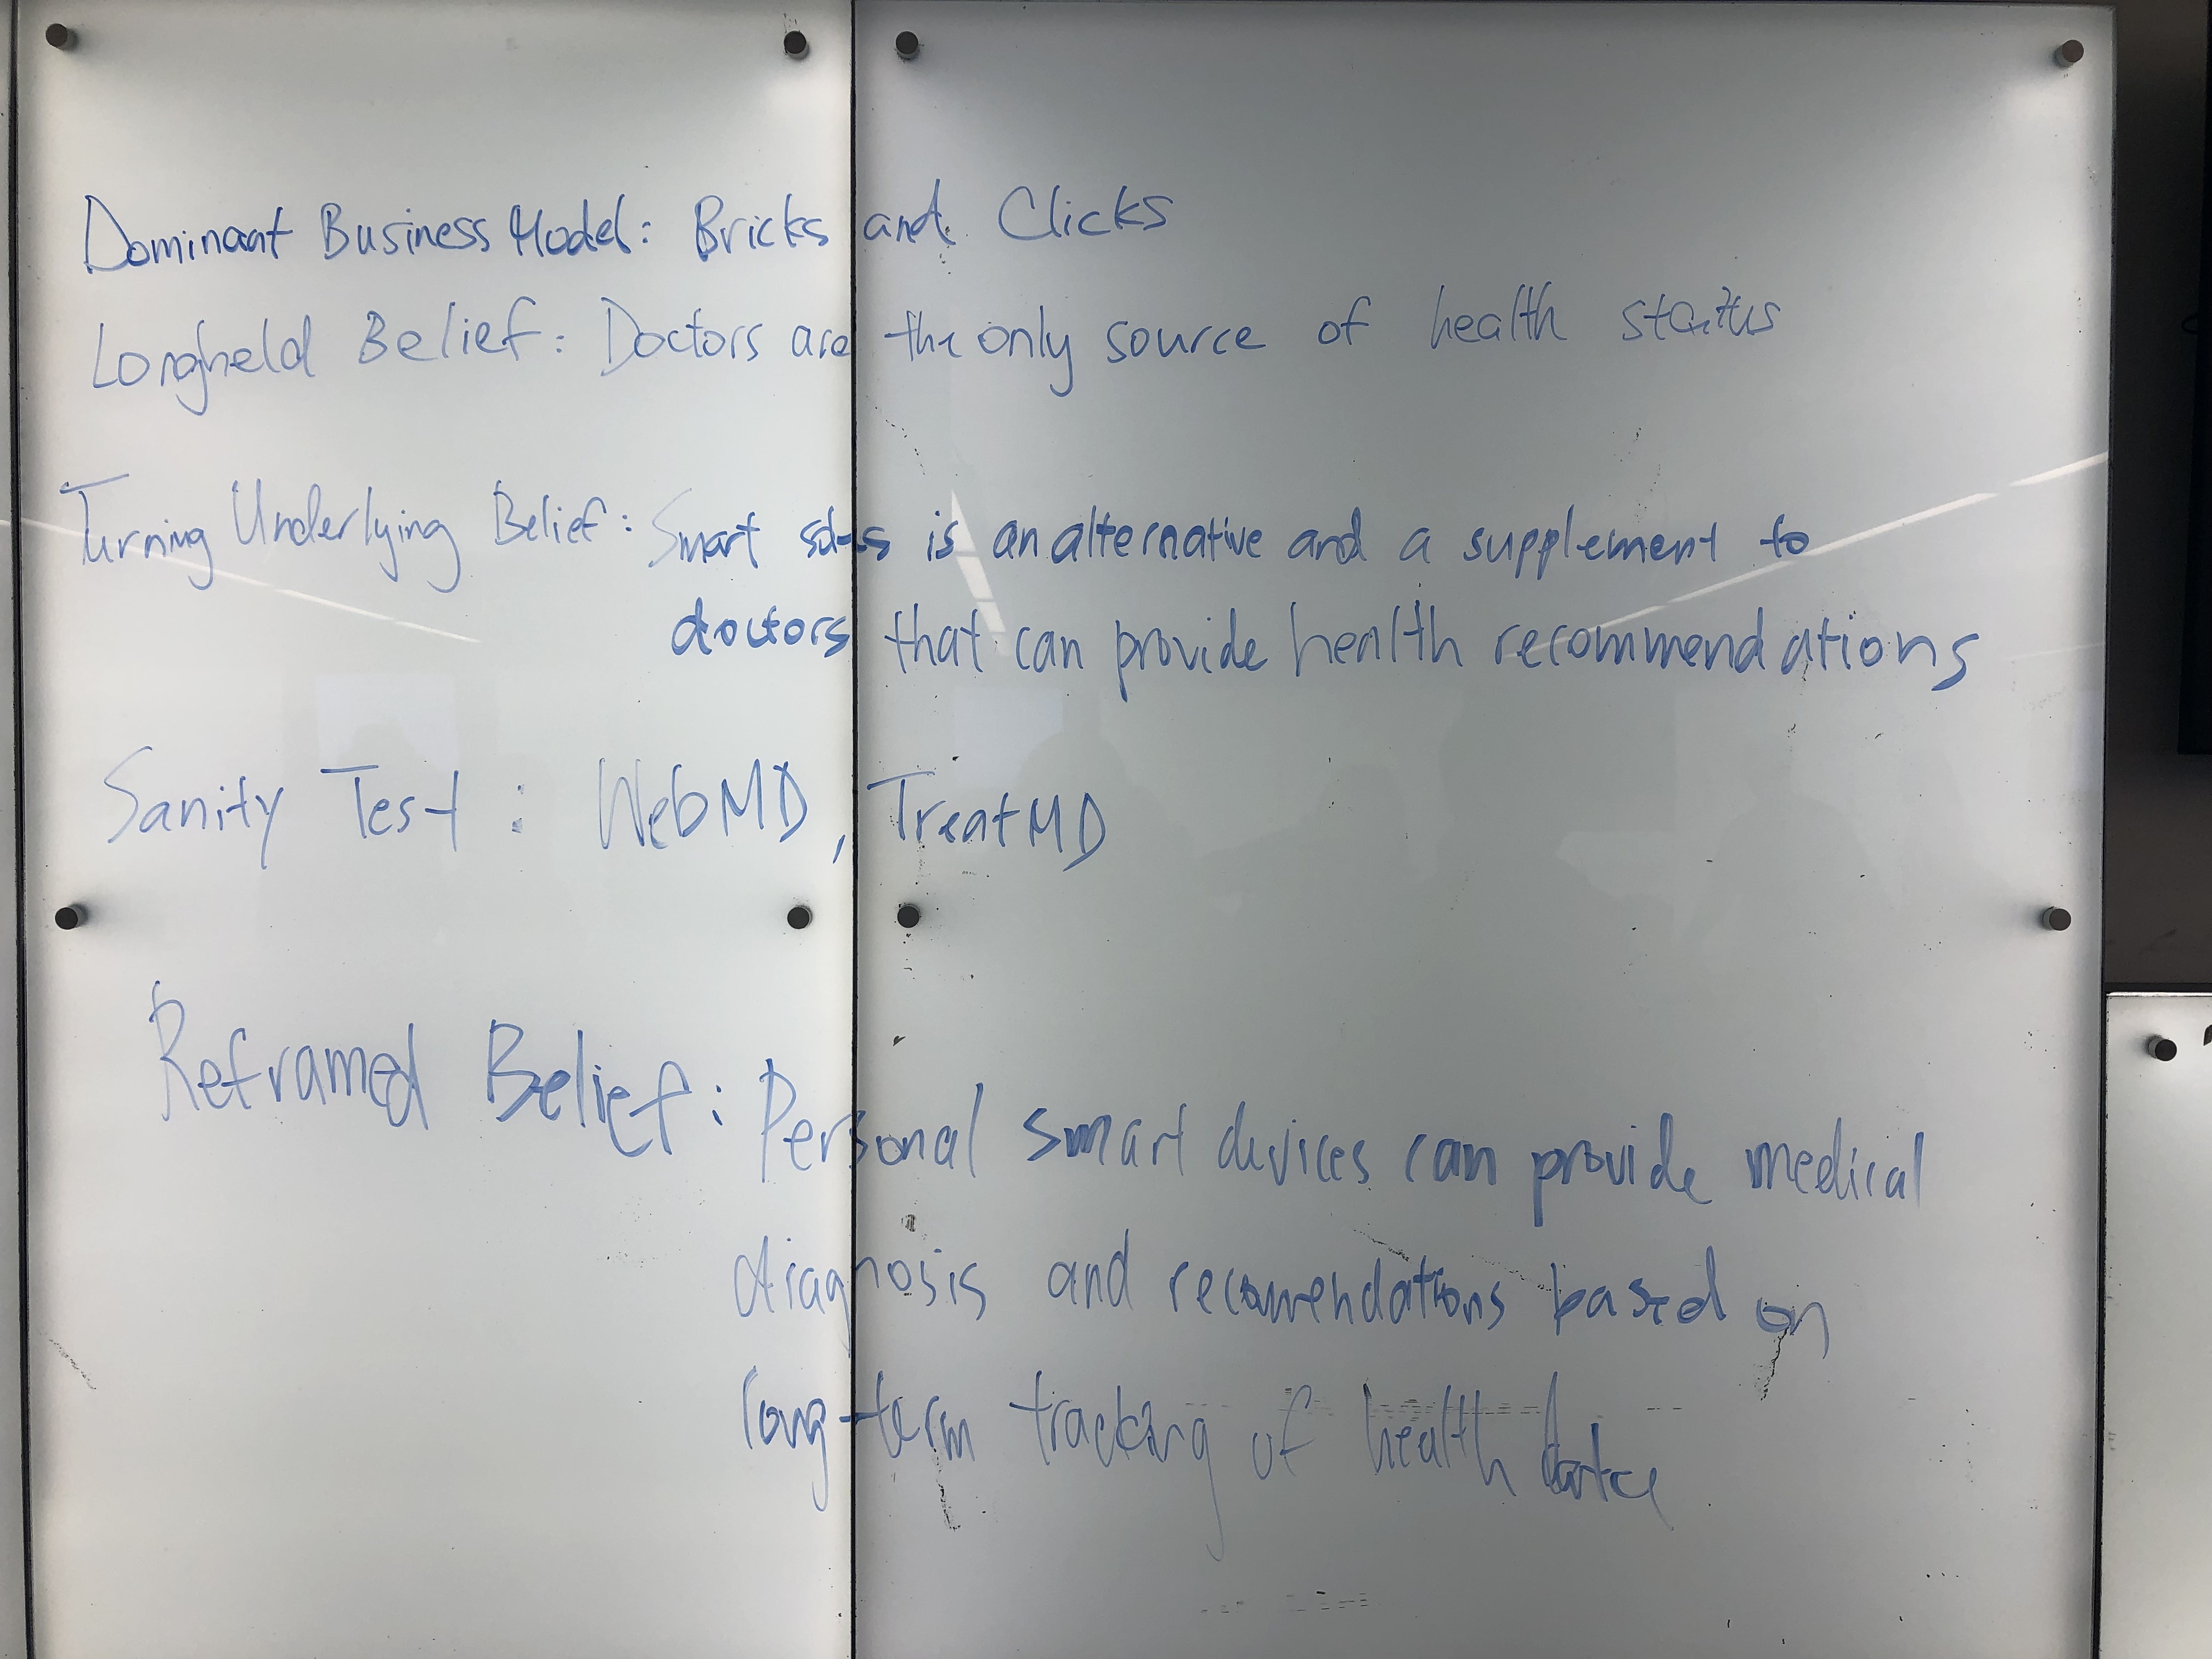 Dominant Business Model: Bricks and Clicks
Longheld Belief: Doctors are the only source of health status
Turning Underlying Belief: Smart is an alternative and a supplement to
doctors that can provide health recommendations
Sanity Test: WebMD, TreatMD
Reframed Belief: Personal smart devices can provide medical
diagnosis and recomendations based on
long-term tracking of health data